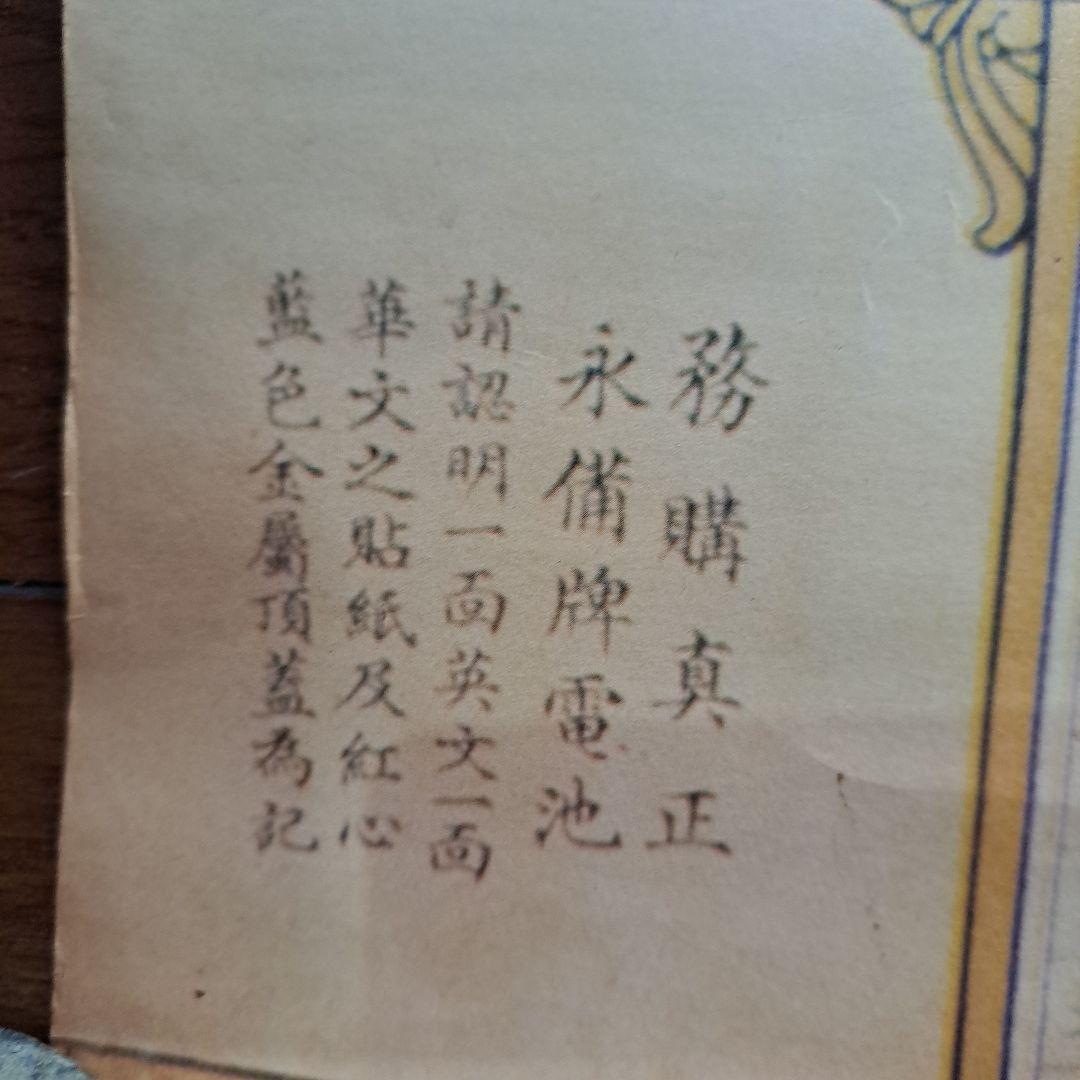 務購真正
永備牌電池
請認明一面英文一面
華文之貼紙及紅心
藍色金屬頂蓋為記